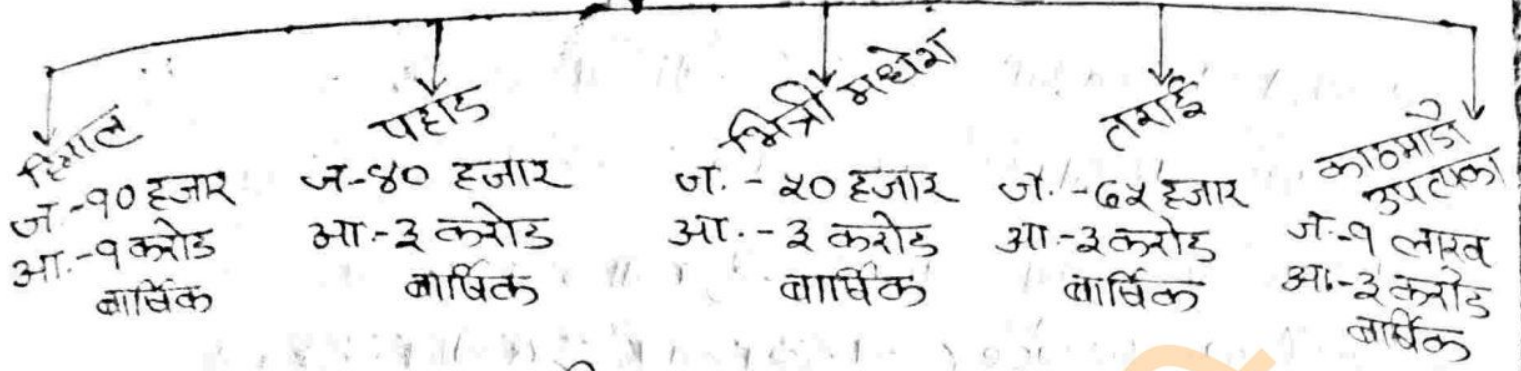 हिमाल
ज.-१० हजार
आ.-१ करोड
बार्षिक
पहाड
ज-४० हजार
आ.-३ करोड
बार्षिक
भित्री मधेश
ज. - ५० हजार
आ. - ३ करोड
बार्षिक
तराई
ज. - ७५ हजार
आ-३ करोड
बार्षिक
काठमाडौ
उपत्यका
ज.-१ लाख
आ.-३ करोड
बार्षिक